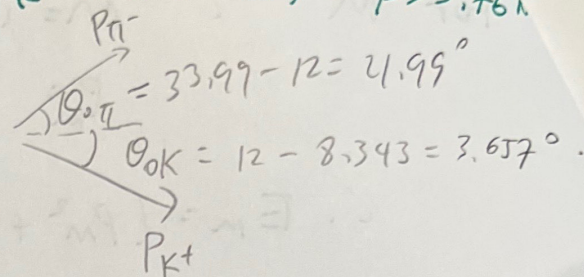 Pπ-
θoπ = 33.99 - 12 = 21.99°
θoK = 12 - 8.343 = 3.657°.
PK+